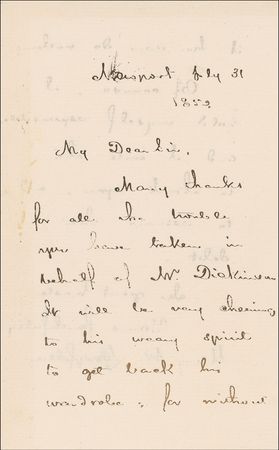 Newport July 31
185
My Dear Sir,
Many thanks
for all the trouble
you have taken in
behalf of Mr Dickinson
It will be very cheering
to his weary spirit
to get back his
wardrobe; for without